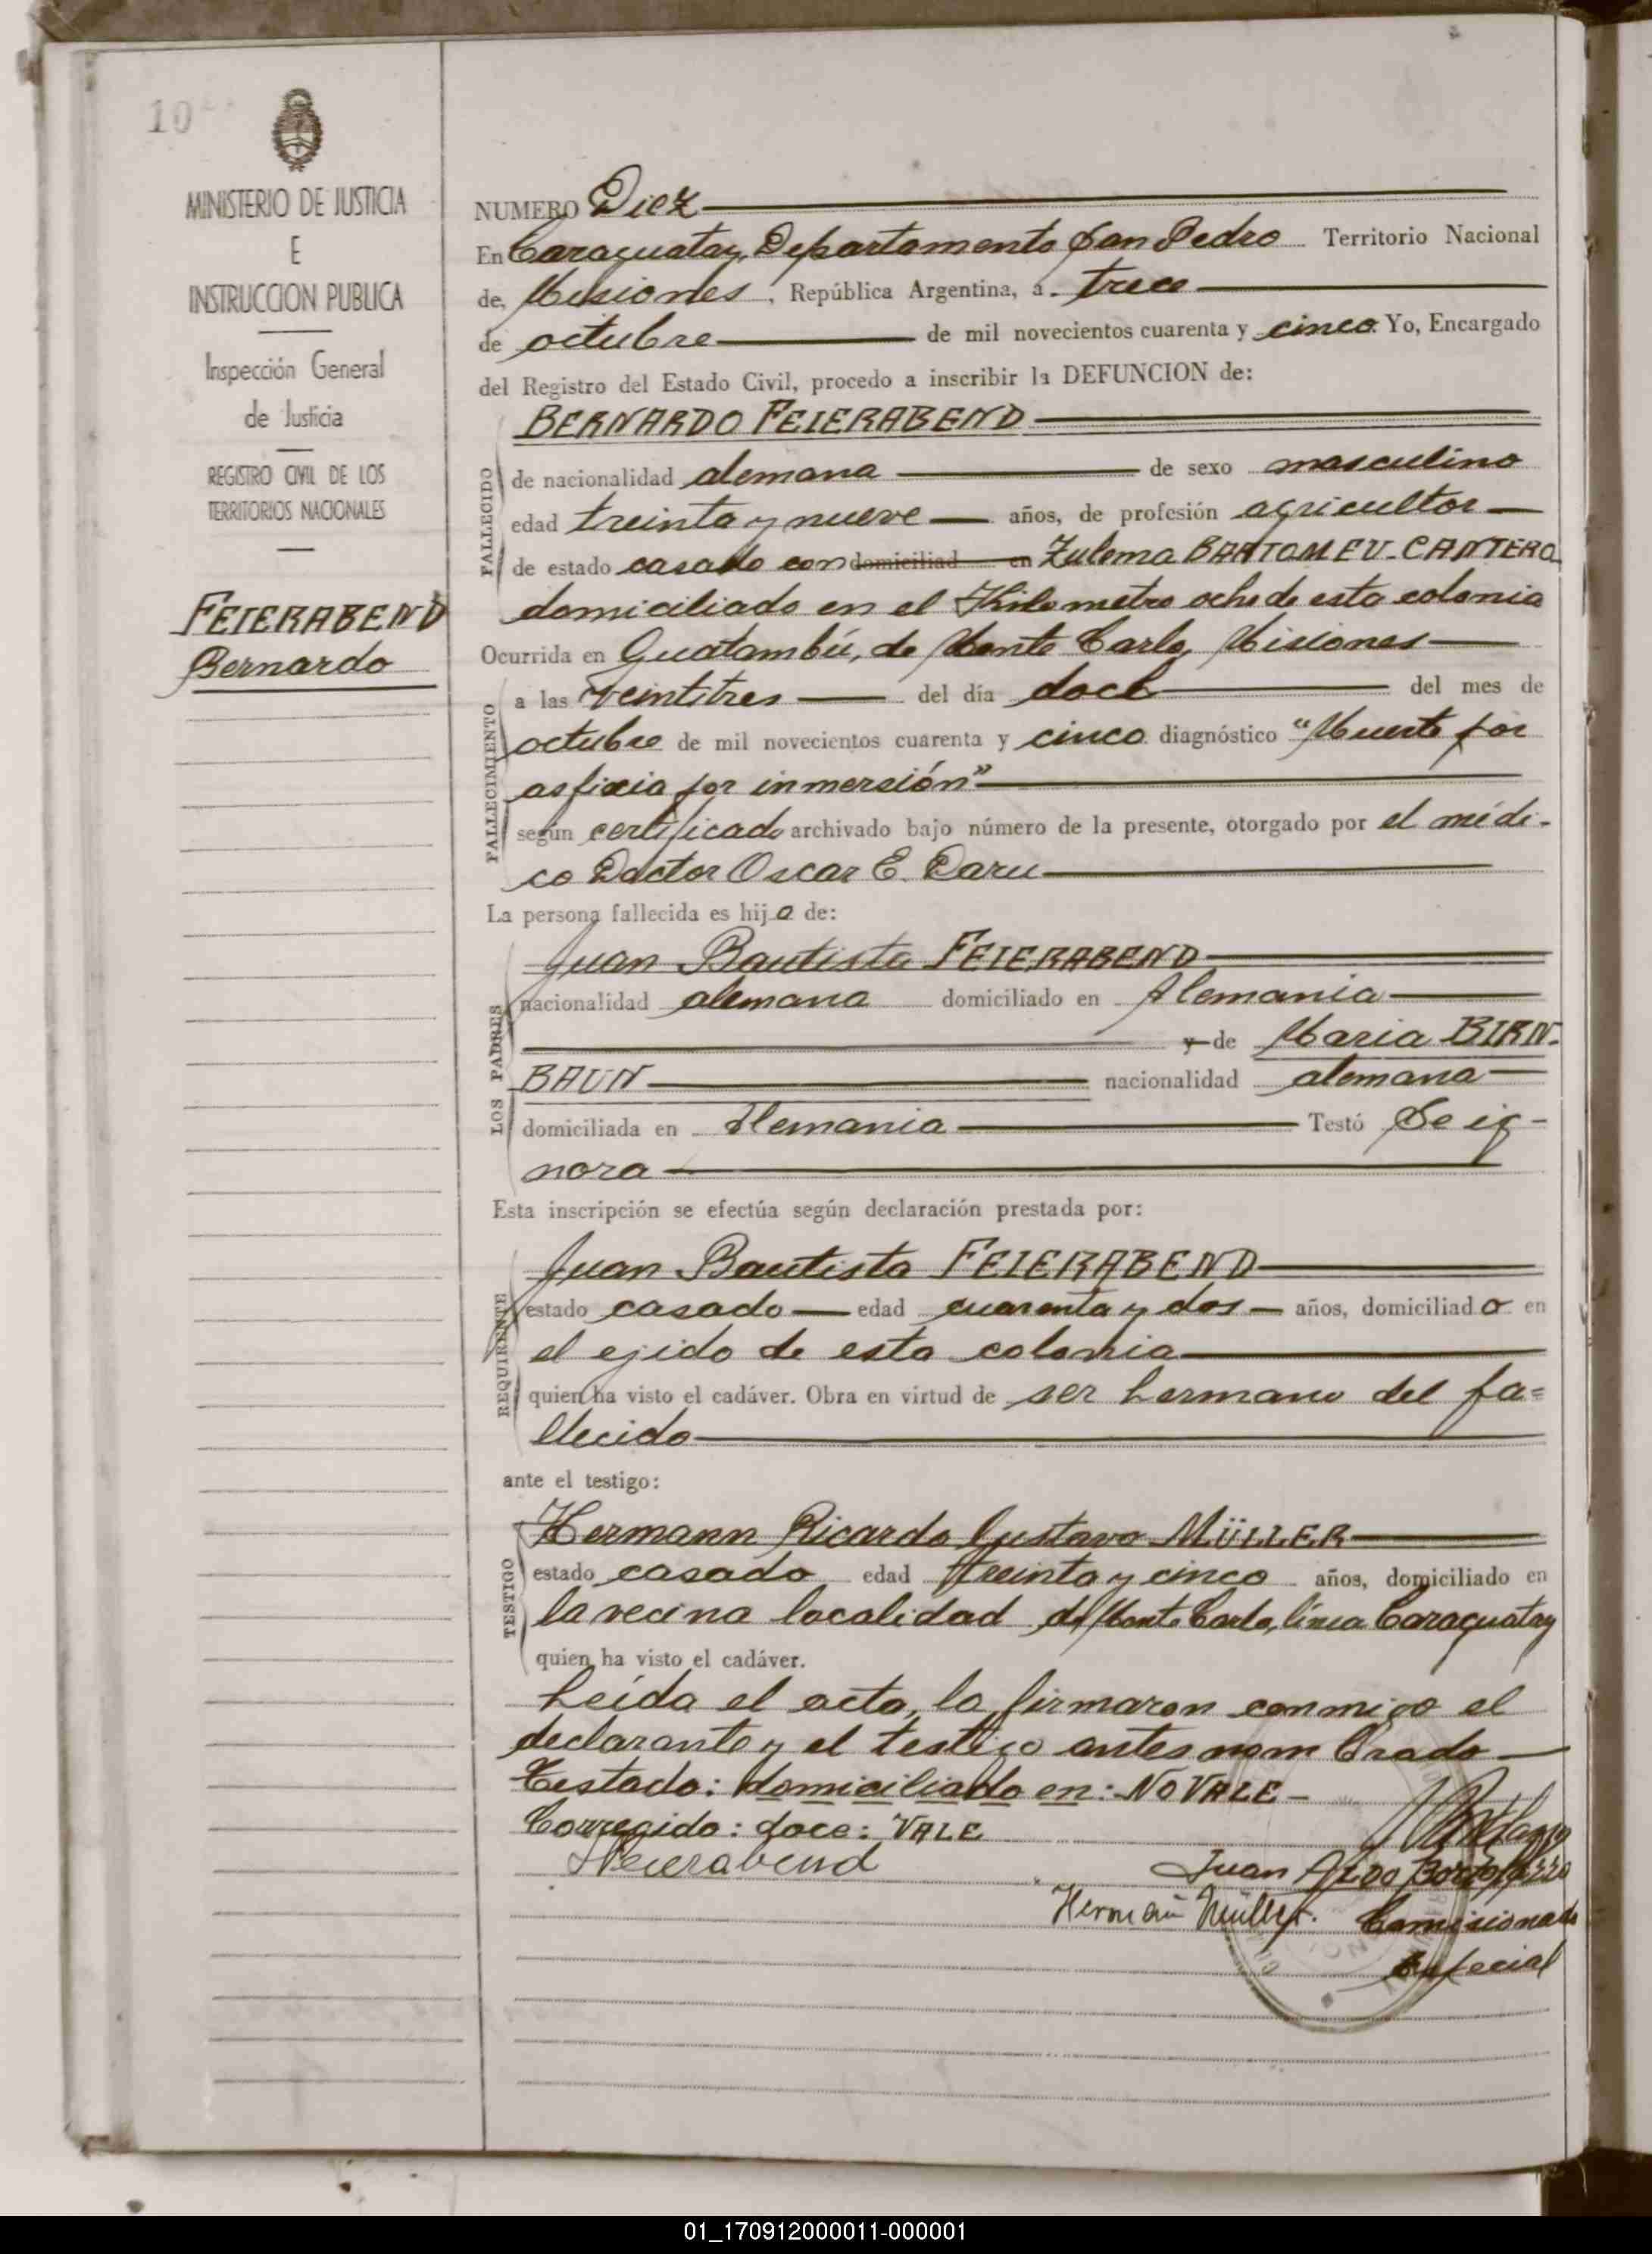 10
MINISTERIO DE JUSTICIA
E
INSTRUCCION PUBLICA
Inspección General
de Justicia
REGISTRO CIVIL DE LOS
TERRITORIOS NACIONALES
FEIERABEND
Bernardo
NUMERO Diez
En Caraguatay, Departamento San Pedro Territorio Nacional
de, Misiones, República Argentina, a trece
de octubre de mil novecientos cuarenta y cinco Yo, Encargado
del Registro del Estado Civil, procedo a inscribir la DEFUNCION de:
FALLECIDO
BERNARDO FEIERABEND
de nacionalidad alemana de sexo masculino
edad treinta y nueve años, de profesión agricultor
de estado casado con domiciliad en Zulema BARTOMEU-CANTERO
domiciliado en el Kilometro ocho de esta colonia
Ocurrida en Guatambú, de Monte Carlo, Misiones
FALLECIMIENTO
a las veintitres del día doce del mes de
octubre de mil novecientos cuarenta y cinco diagnóstico "Muerte por
asfixia por inmersión"
según certificado archivado bajo número de la presente, otorgado por el médi-
co Doctor Oscar E. Daru
La persona fallecida es hijo de:
LOS PADRES
Juan Bautista FEIERABEND
nacionalidad alemana domiciliado en Alemania
y de Maria BIRN-
BAUN nacionalidad alemana
domiciliada en Alemania Testó Se ig-
nora
Esta inscripción se efectúa según declaración prestada por:
REQUIRENTE
Juan Bautista FEIERABEND
estado casado edad cuarenta y dos años, domiciliado en
el ejido de esta colonia
quien ha visto el cadáver. Obra en virtud de ser hermano del fa=
llecido
ante el testigo:
TESTIGO
Hermann Ricardo Gustavo MÜLLER
estado casado edad treinta y cinco años, domiciliado en
la vecina localidad de Monte Carlo, línea Caraguatay
quien ha visto el cadáver.
Leída el acta, la firmaron conmigo el
declarante y el testigo antes nombrado
Testado: domiciliado en: NO VALE-
Corregido: doce: VALE
Feierabend
Juan Aldo
Hermann Müller. Comisionado
Especial
01_170912000011-000001